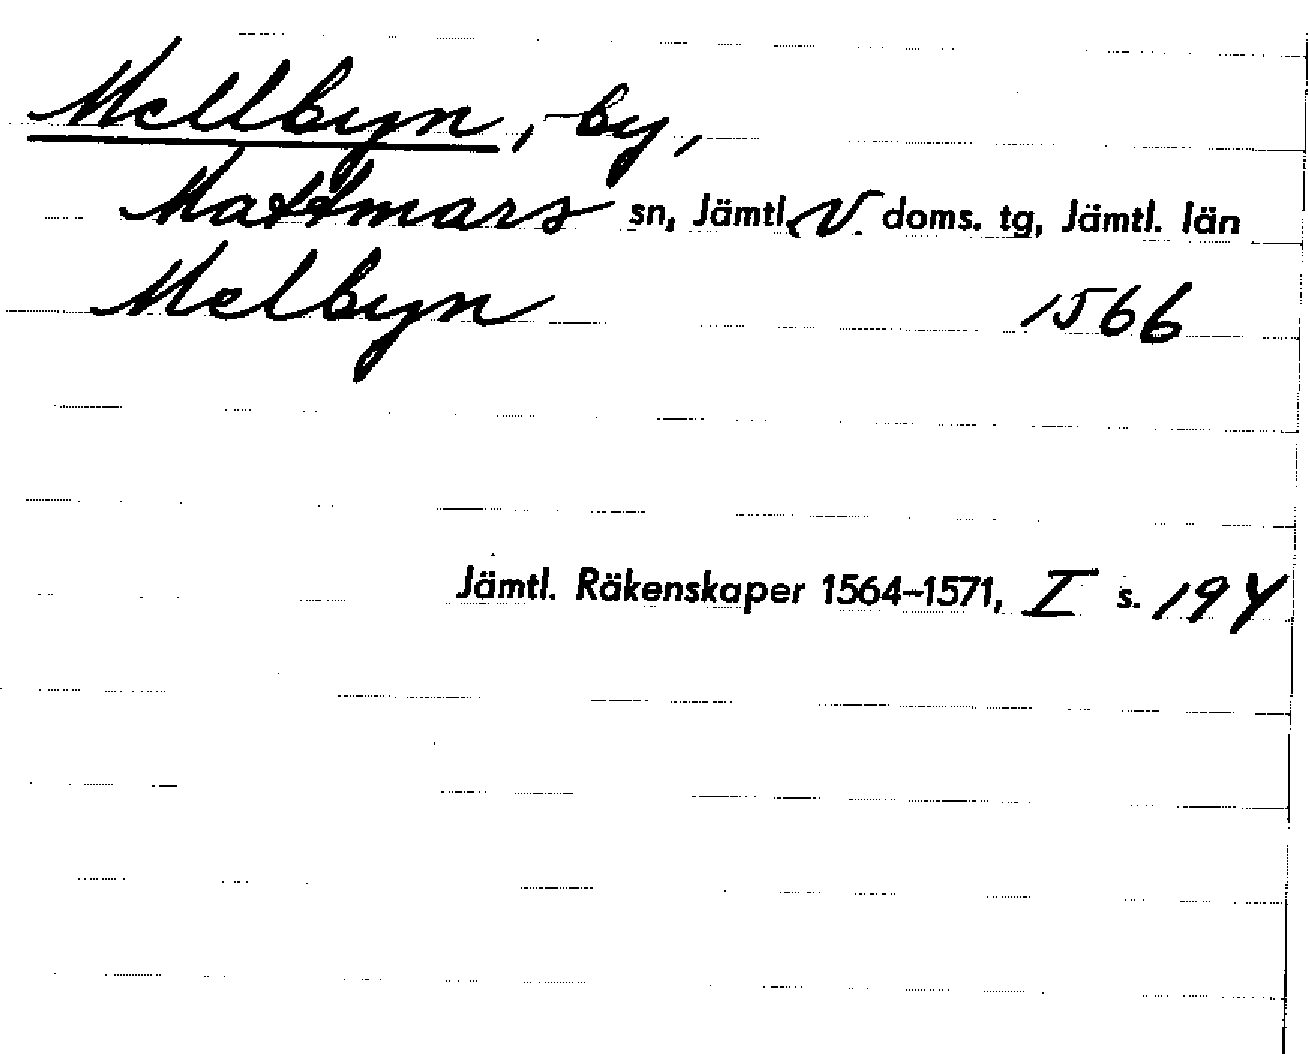 Mellbyn, by,
Mattmars sn, Jämtl. V. doms. tg, Jämtl. län
Melbyn 1566
Jämtl. Räkenskaper 1564–1571, I s. 194